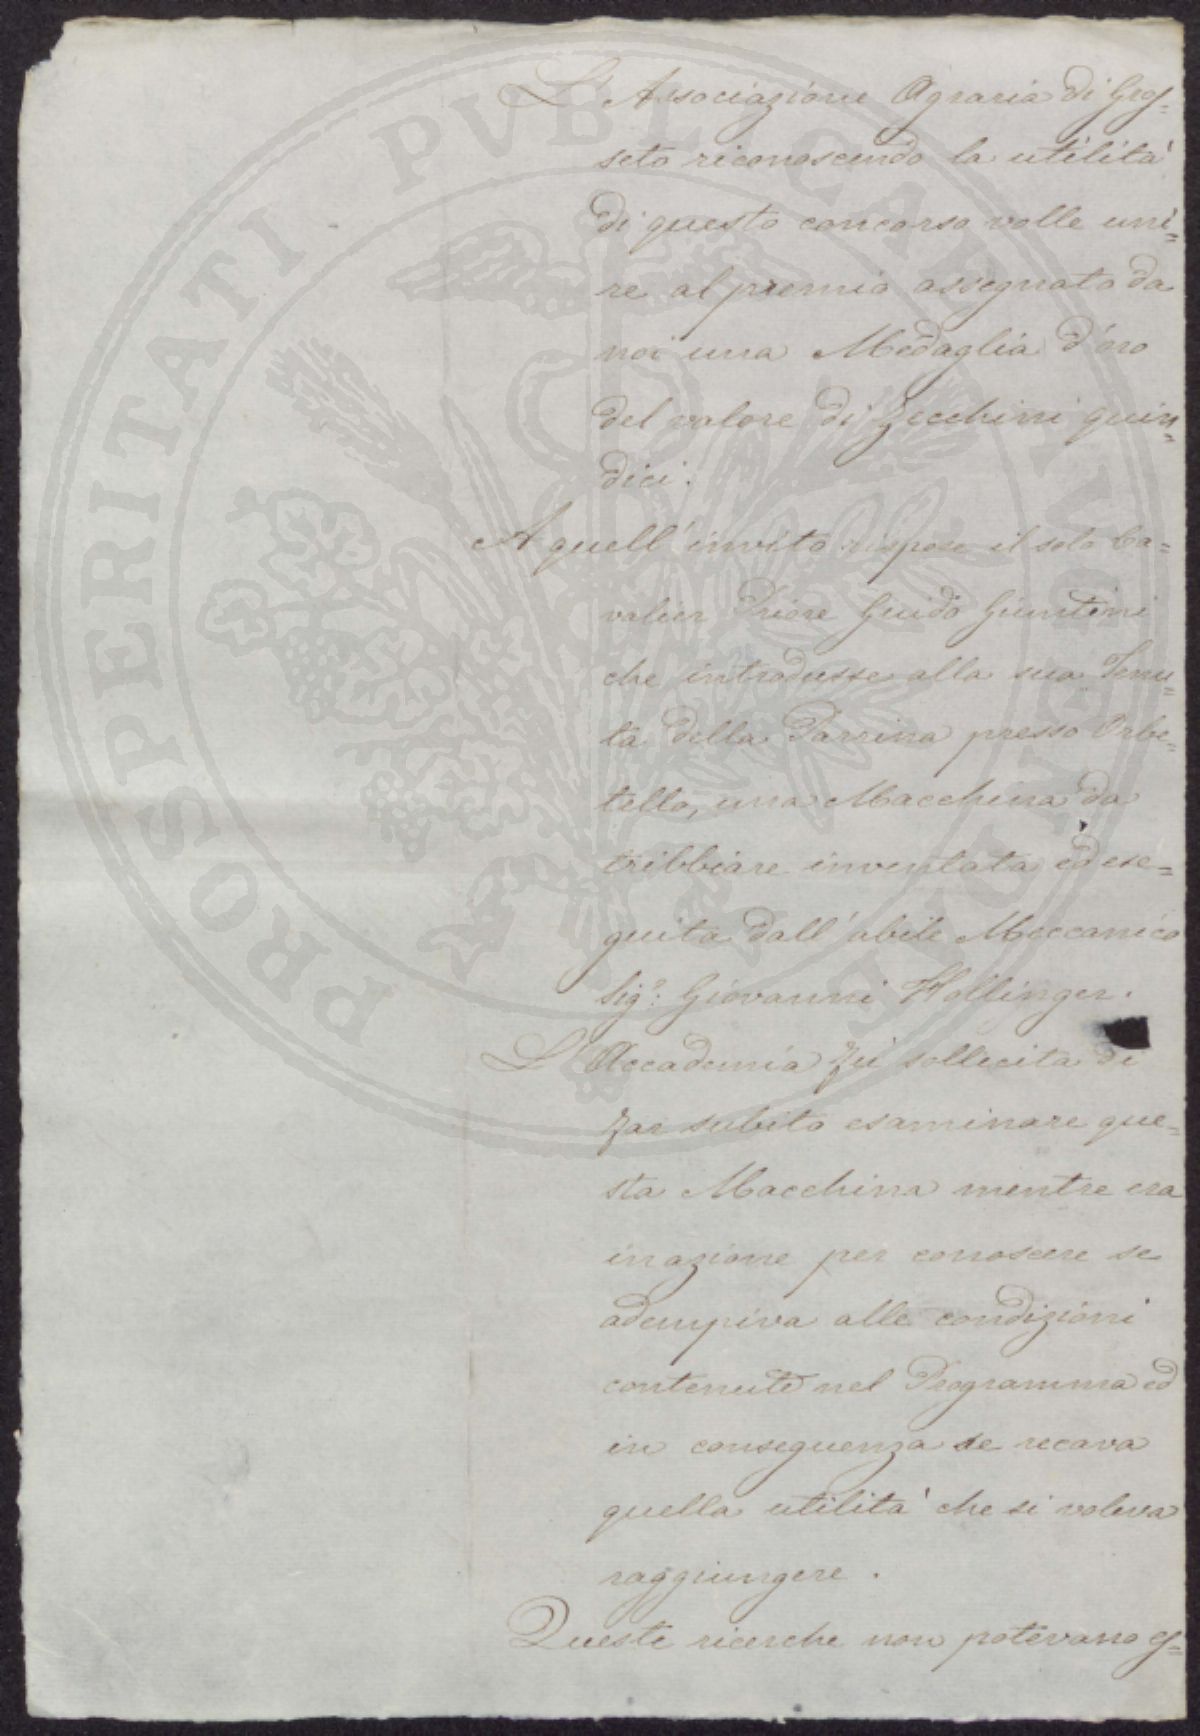 L'Associazione Agraria di Gros=
seto riconoscendo la utilità
di questo concorso volle uni=
re al premio assegnato da
noi una Medaglia d'oro
del valore di Zecchini quin=
dici.
A quell'invito rispose il solo Ca=
valier Priore Guido Giuntini
che introdusse alla sua Tenu=
ta della Parrina presso Orbe=
tello, una Macchina da
tribbiare inventata ed ese=
guita dall'abile Meccanico
Sigr: Giovanni Hollinger.
L'Accademia fu sollecita di
far subito esaminare que=
sta Macchina mentre era
in azione per conoscere se
adempiva alle condizioni
contenute nel Programma ed
in conseguenza se recava
quella utilità che si voleva
raggiungere.
Queste ricerche non potevano es=
PROSPERITATI PVBLICAE AVGENDAE